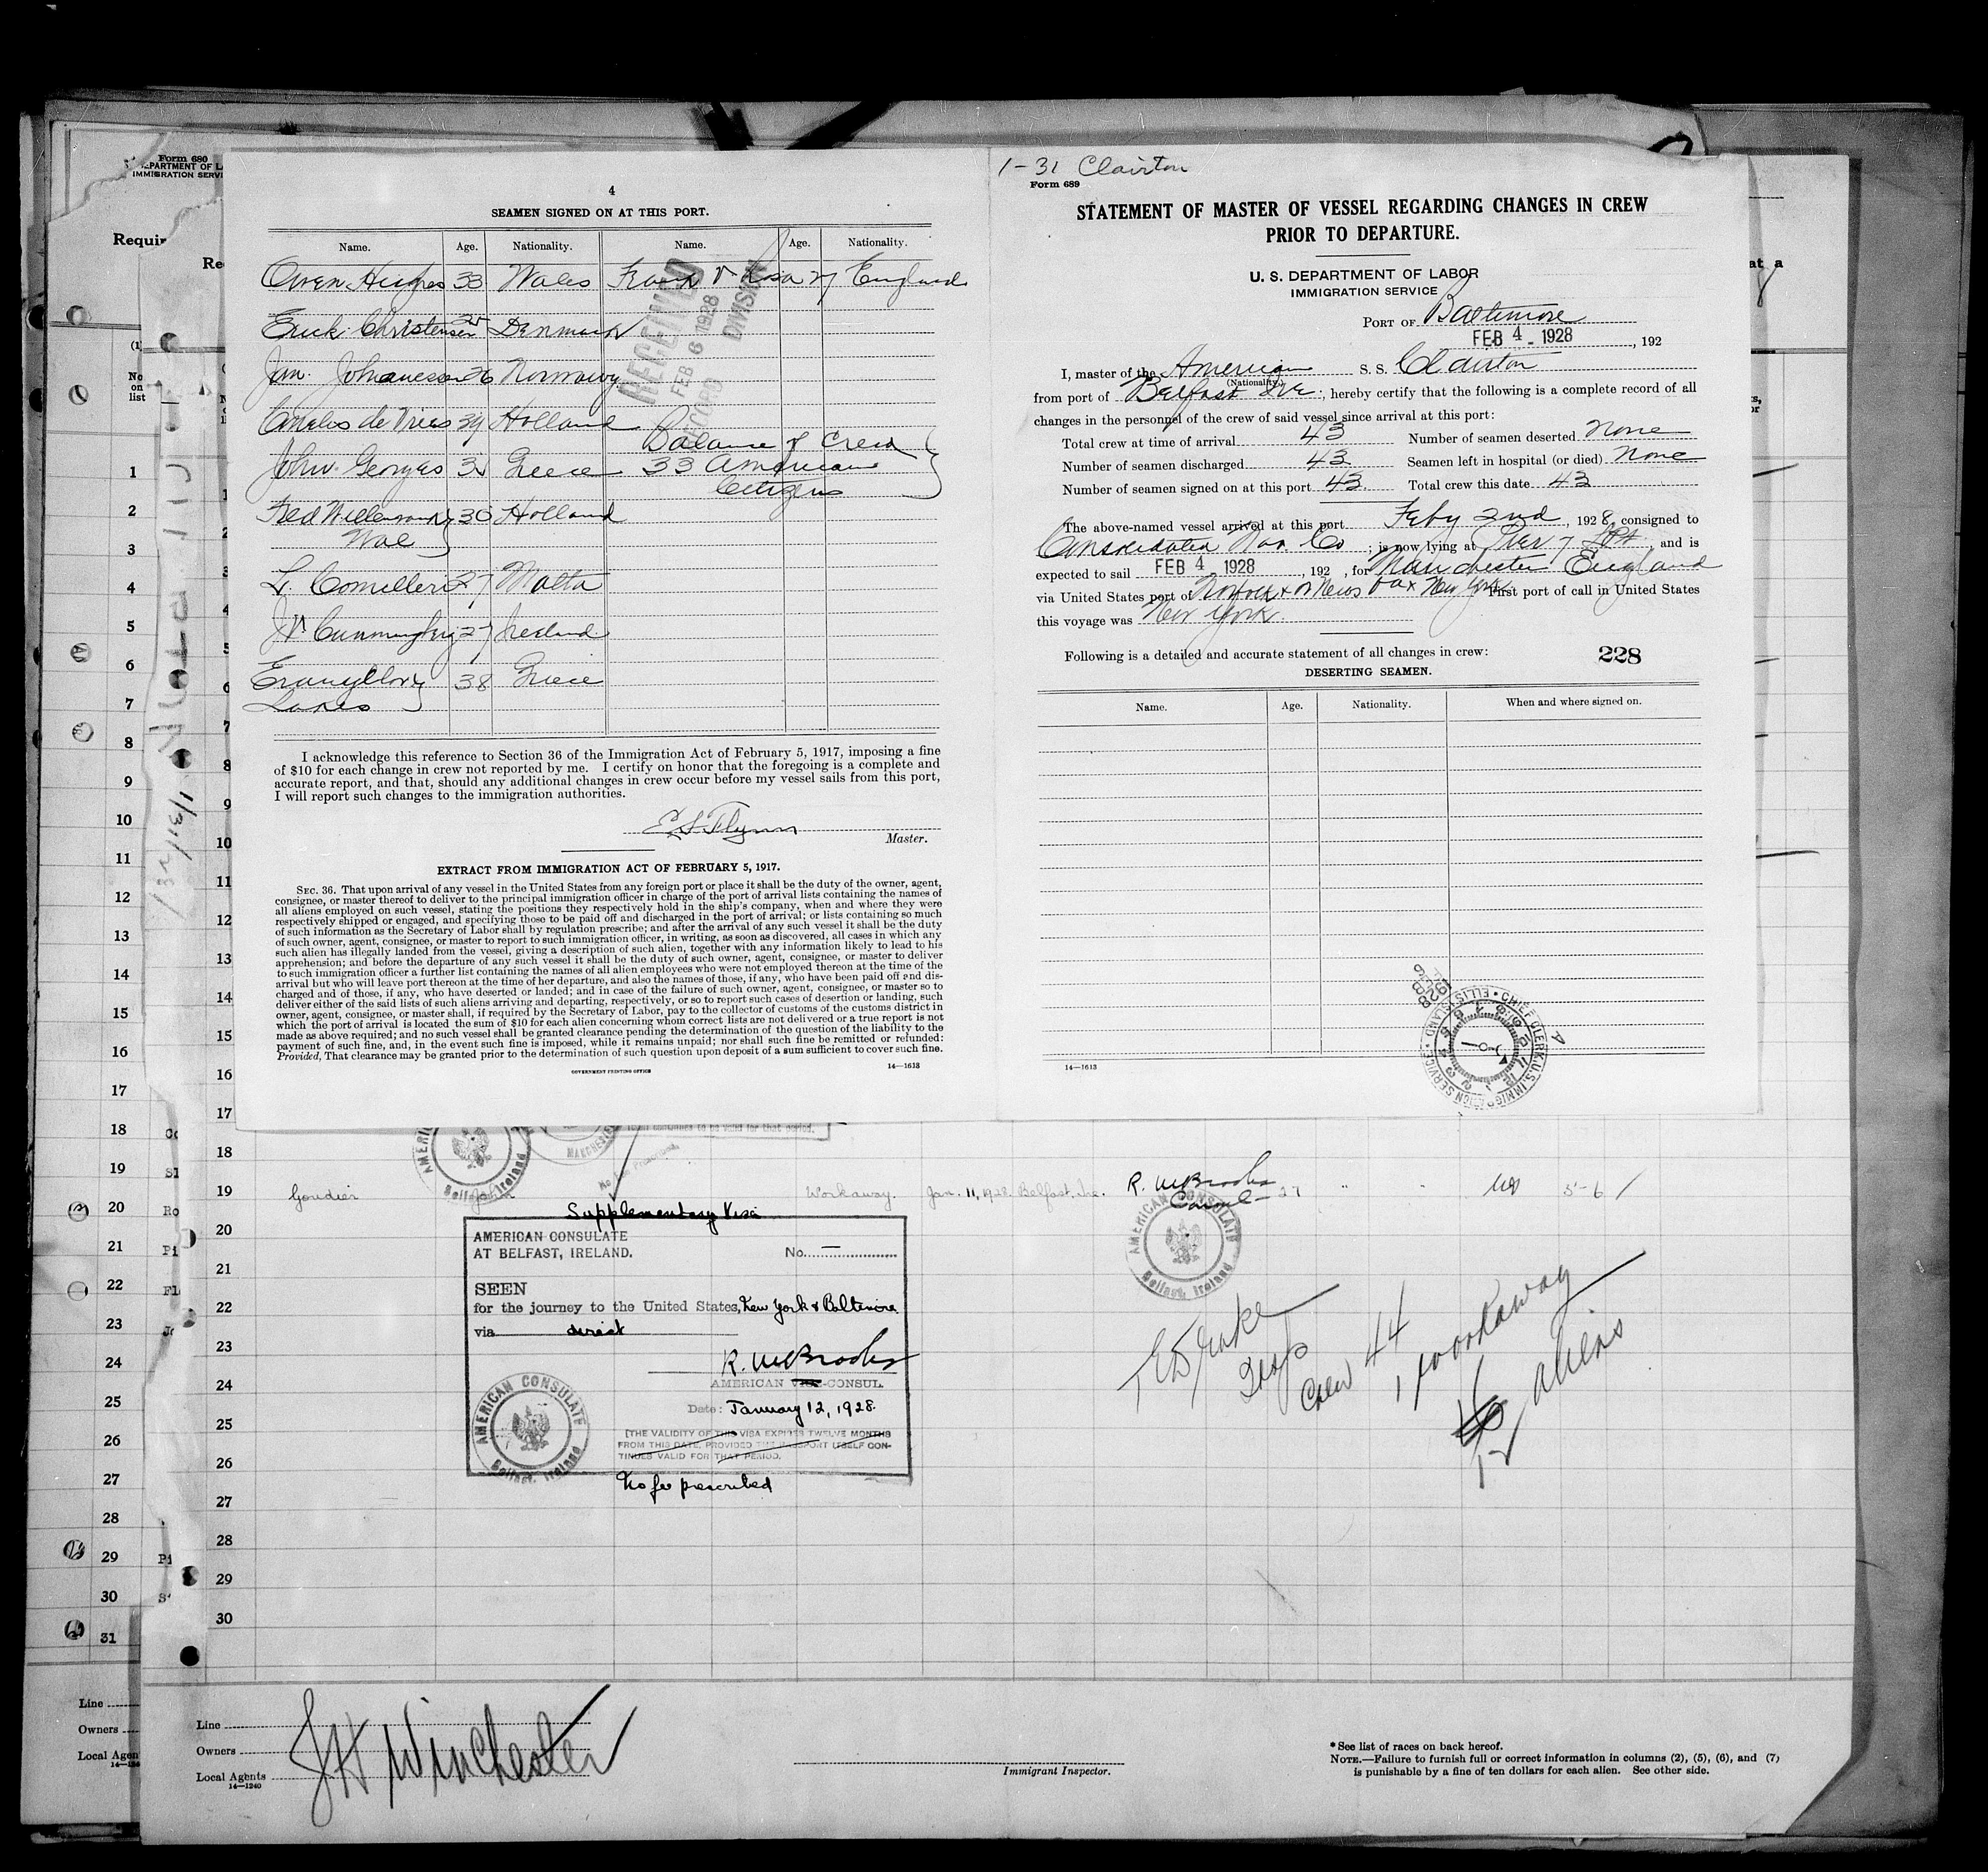 Form 680
DEPARTMENT OF L
IMMIGRATION SERVI
4
SEAMEN SIGNED ON AT THIS PORT.
Name. Age. Nationality. Name. Age. Nationality.
Owen Hughes 33 Wales Frank 27 England
Erick Christensen Denmark
Jm. Johanessen 26 Norway
de Vries 39 Holland
Balance of Crew
John Georges Greece 33 American
Citizens
Fred 30 Holland
L. Comilleri 27 Malta
27 Ireland
38 Greece
RECEIVED
FEB 6 1928
RECORD DIVISION
I acknowledge this reference to Section 36 of the Immigration Act of February 5, 1917, imposing a fine
of $10 for each change in crew not reported by me. I certify on honor that the foregoing is a complete and
accurate report, and that, should any additional changes in crew occur before my vessel sails from this port,
I will report such changes to the immigration authorities.
E S Flynn
Master.
EXTRACT FROM IMMIGRATION ACT OF FEBRUARY 5, 1917.
SEC. 36. That upon arrival of any vessel in the United States from any foreign port or place it shall be the duty of the owner, agent,
consignee, or master thereof to deliver to the principal immigration officer in charge of the port of arrival lists containing the names of
all aliens employed on such vessel, stating the positions they respectively hold in the ship's company, when and where they were
respectively shipped or engaged, and specifying those to be paid off and discharged in the port of arrival; or lists containing so much
of such information as the Secretary of Labor shall by regulation prescribe; and after the arrival of any such vessel it shall be the duty
of such owner, agent, consignee, or master to report to such immigration officer, in writing, as soon as discovered, all cases in which any
such alien has illegally landed from the vessel, giving a description of such alien, together with any information likely to lead to his
apprehension; and before the departure of any such vessel it shall be the duty of such owner, agent, consignee, or master to deliver
to such immigration officer a further list containing the names of all alien employees who were not employed thereon at the time of the
arrival but who will leave port thereon at the time of her departure, and also the names of those, if any, who have been paid off and dis-
charged and of those, if any, who have deserted or landed; and in case of the failure of such owner, agent, consignee, or master so to
deliver either of the said lists of such aliens arriving and departing, respectively, or so to report such cases of desertion or landing, such
owner, agent, consignee, or master shall, if required by the Secretary of Labor, pay to the collector of customs of the customs district in
which the port of arrival is located the sum of $10 for each alien concerning whom correct lists are not delivered or a true report is not
made as above required; and no such vessel shall be granted clearance pending the determination of the question of the liability to the
payment of such fine, and, in the event such fine is imposed, while it remains unpaid; nor shall such fine be remitted or refunded:
Provided, That clearance may be granted prior to the determination of such question upon deposit of a sum sufficient to cover such fine.
GOVERNMENT PRINTING OFFICE 14—1613
1-31 Clairton
Form 689
STATEMENT OF MASTER OF VESSEL REGARDING CHANGES IN CREW
PRIOR TO DEPARTURE.
U. S. DEPARTMENT OF LABOR
IMMIGRATION SERVICE
PORT OF Baltimore
FEB 4 - 1928, 192
I, master of the American S. S. Clairton
(Nationality.)
from port of Belfast Ire, hereby certify that the following is a complete record of all
changes in the personnel of the crew of said vessel since arrival at this port:
Total crew at time of arrival 43 Number of seamen deserted None
Number of seamen discharged 43 Seamen left in hospital (or died) None
Number of seamen signed on at this port 43 Total crew this date 43
The above-named vessel arrived at this port Feby 2nd, 1928, consigned to
Consolidated Nav. Co; is now lying at Pier 7, and is
expected to sail FEB 4 - 1928, 192 , for Manchester England
via United States port of Norfolk + N News Va x New York First port of call in United States
this voyage was New York.
Following is a detailed and accurate statement of all changes in crew: 228
DESERTING SEAMEN.
Name. Age. Nationality. When and where signed on.
CHIEF CLERK, U.S. IMMIGRATION SERVICE • ELLIS ISLAND
14—1613
19 Goudier John Workaway. Jan. 11, 1928 Belfast, Ire. R. McBrooks 27 " " 5-6
AMERICAN CONSULATE
Belfast, Ireland
Supplementary Visa
AMERICAN CONSULATE
AT BELFAST, IRELAND. No. —
SEEN
for the journey to the United States, New York & Baltimore
via direct
AMERICAN VICE-CONSUL.
Date: January 12, 1928.
[THE VALIDITY OF THIS VISA EXPIRES TWELVE MONTHS
FROM THIS DATE, PROVIDED THE PASSPORT ITSELF CON-
TINUES VALID FOR THAT PERIOD.
AMERICAN CONSULATE
Belfast, Ireland
No fee prescribed
Crew 44
1 workaway
aliens
12
Line
Owners
Local Agents
14—1240
J H Winchester
Immigrant Inspector.
* See list of races on back hereof.
NOTE.—Failure to furnish full or correct information in columns (2), (5), (6), and (7)
is punishable by a fine of ten dollars for each alien. See other side.